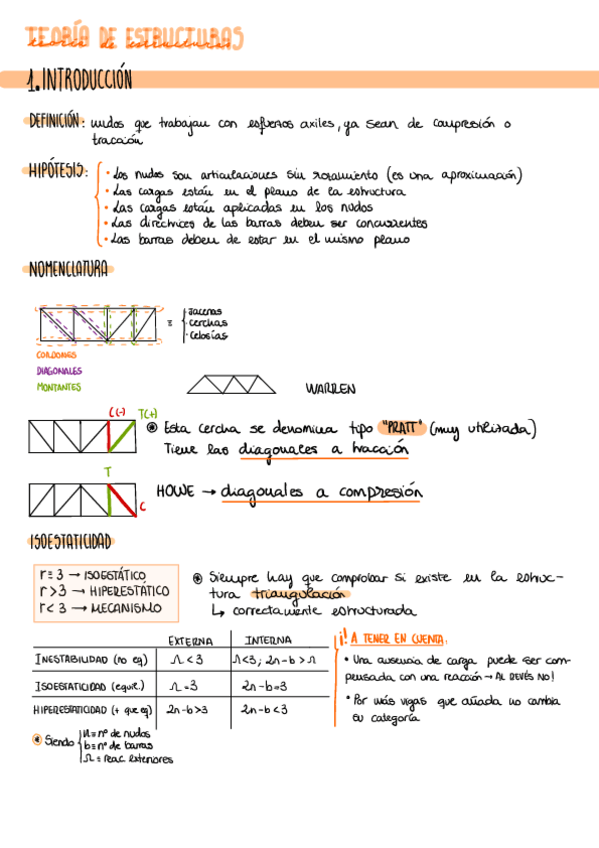 TEORÍA DE ESTRUCTURAS
teoría de estructuras
1. INTRODUCCIÓN
DEFINICIÓN: nudos que trabajan con esfuerzos axiles, ya sean de compresión o
tracción
HIPÓTESIS:
· Los nudos son articulaciones sin rozamiento (es una aproximación)
· Las cargas están en el plano de la estructura
· Las cargas están aplicadas en los nudos
· Las directrices de las barras deben ser concurrentes
· Las barras deben de estar en el mismo plano
NOMENCLATURA
≡
· Jacenas
· Cerchas
· Celosías
CORDONES
DIAGONALES
MONTANTES
WARREN
C(-) T(+)
Esta cercha se denomina tipo "PRATT" (muy utilizada)
Tiene las diagonales a tracción
T
C
HOWE → diagonales a compresión
ISOESTATICIDAD
r = 3 → ISOESTÁTICO
r > 3 → HIPERESTÁTICO
r < 3 → MECANISMO
Siempre hay que comprobar si existe en la estruc-
tura triangulación
↳ correctamente estructurada
EXTERNA INTERNA
INESTABILIDAD (no eq) r < 3 r<3; 2n-b > r
ISOESTATICIDAD (equil.) r = 3 2n-b=3
HIPERESTATICIDAD (+ que eq) 2n-b>3 2n-b<3
Siendo
n = nº de nudos
b = nº de barras
r = reac. exteriores
¡! A TENER EN CUENTA:
· Una ausencia de carga puede ser com-
pensada con una reacción → AL REVÉS NO!
· Por más vigas que añada no cambia
su categoría